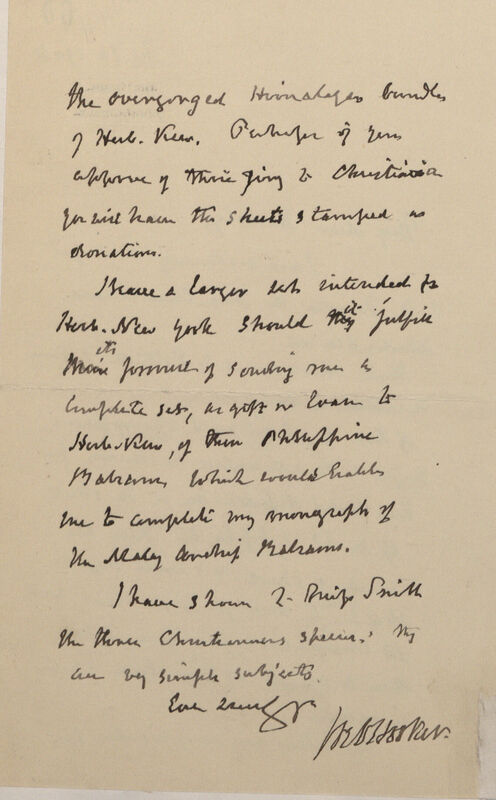 the overgorged Himalayan bundles
of Herb. Kew. Perhaps if you
approve of their going to Christiania
you will have the sheets stamped as
donations.
I have a larger set intended for
Herb. New York should it fulfill
its promise of sending me a
complete set, as gift or loan to
Herb. Kew, of their Philippine
Balsams which would enable
me to complete my monograph of
the Malay Archip Balsams.
I have shown to Smith
the three Christiania specim: they
are very simple subjects.
Ever
Jos D Hooker